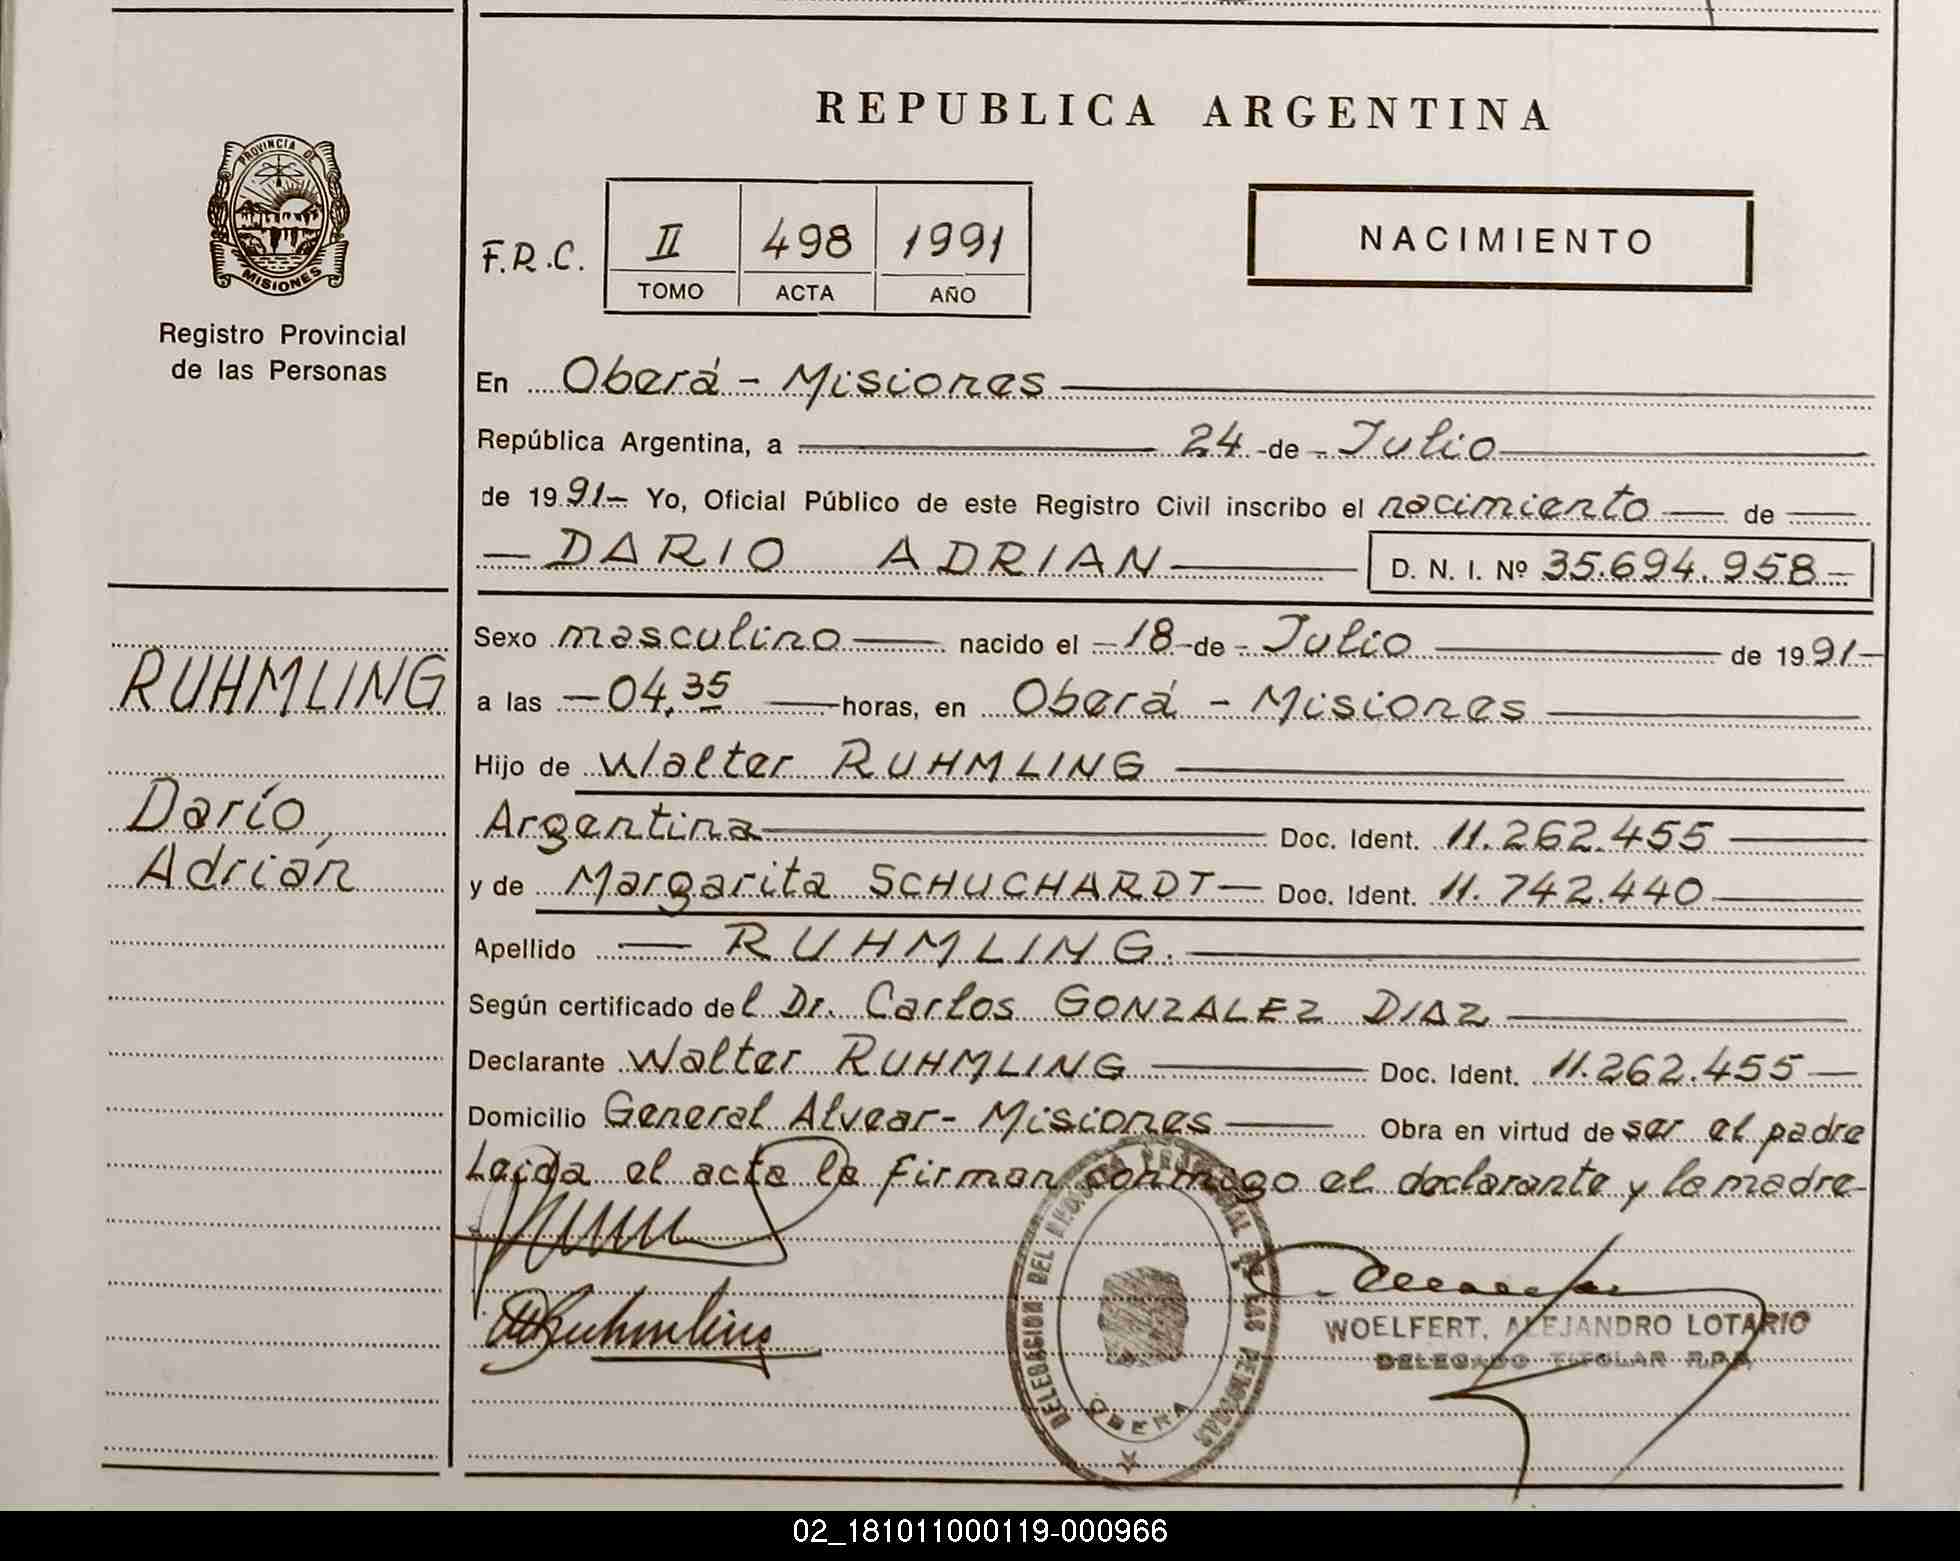 REPUBLICA ARGENTINA
PROVINCIA DE
MISIONES
Registro Provincial
de las Personas
F.R.C. II 498 1991
TOMO ACTA AÑO
NACIMIENTO
En Oberá - Misiones
República Argentina, a 24 - de - Julio
de 1991- Yo, Oficial Público de este Registro Civil inscribo el nacimiento de
DARIO ADRIAN D. N. I. Nº 35.694.958
RUHMLING
Darío
Adrián
Sexo masculino nacido el - 18 - de - Julio de 1991-
a las - 04,35 horas, en Oberá - Misiones
Hijo de Walter RUHMLING
Argentina Doc. Ident. 11.262.455
y de Margarita SCHUCHARDT Doc. Ident. 11.742.440
Apellido RUHMLING.
Según certificado del Dr. Carlos GONZALEZ DIAZ
Declarante Walter RUHMLING Doc. Ident. 11.262.455
Domicilio General Alvear - Misiones Obra en virtud de ser el padre
Leída el acta la firman conmigo el declarante y la madre-
Ruhmling
DELEGACION DEL REGISTRO PROVINCIAL DE LAS PERSONAS
OBERA
WOELFERT, ALEJANDRO LOTARIO
DELEGADO TITULAR R.P.P.
02_181011000119-000966